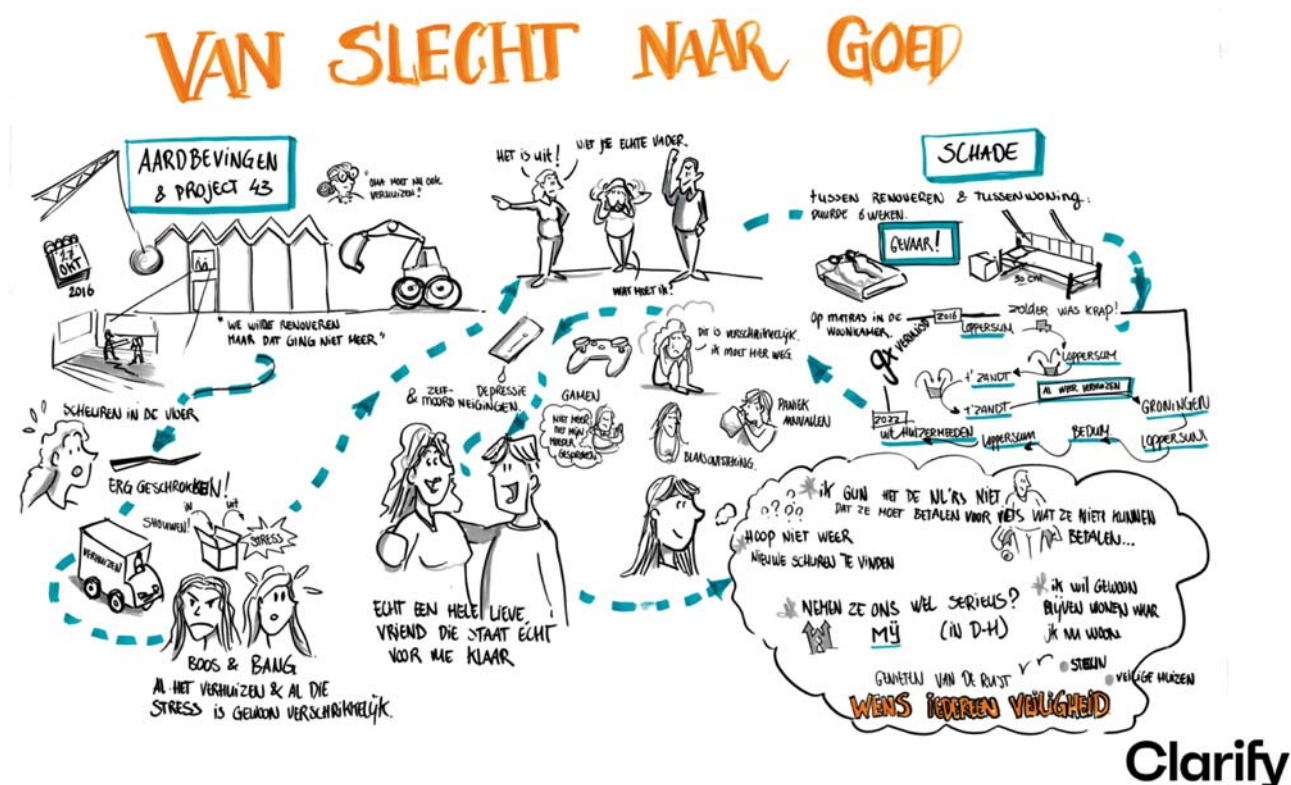 VAN SLECHT NAAR GOED
AARDBEVINGEN
& PROJECT 43
"OMA MOET NU OOK
VERHUIZEN!
27
OKT
2016
"WE WILDE RENOVEREN
MAAR DAT GING NIET MEER"
SCHEUREN IN DE VLOER
ERG GESCHROKKEN!
IN
UIT
SHOUWEN!
STRESS
VERHUIZEN
BOOS & BANG
AL HET VERHUIZEN & AL DIE
STRESS IS GEWOON VERSCHRIKKELIJK.
HET IS UIT!
NIET JE ECHTE VADER.
WAT MOET IK?
DIT IS VERSCHRIKKELIJK.
IK MOET HIER WEG.
& ZELF-
MOORD NEIGINGEN.
DEPRESSIE
GAMEN
NIET MEER
MET MIJN
MOEDER
GESPROKEN
BLAASONTSTEKING.
PANIEK
AANVALLEN
ECHT EEN HELE LIEVE
VRIEND DIE STAAT ECHT
VOOR ME KLAAR
SCHADE
TUSSEN RENOVEREN & TUSSENWONING:
DUURDE 6 WEKEN.
GEVAAR!
30 CM
OP MATRAS IN DE
WOONKAMER.
ZOLDER WAS KRAP!
2016
LOPPERSUM
LOPPERSUM
T'ZANDT
T'ZANDT
AL WEER VERHUIZEN
GRONINGEN
LOPPERSUM
BEDUM
LOPPERSUM
UITHUIZERMEEDEN
2022
???
* IK GUN HET DE NL'RS NIET
DAT ZE MOET BETALEN VOOR IETS WAT ZE NIET KUNNEN
BETALEN...
* HOOP NIET WEER
NIEUWE SCHUREN TE VINDEN
* NEMEN ZE ONS WEL SERIEUS?
MIJ (IN D-H)
* IK WIL GEWOON
BLIJVEN WONEN WAAR
IK NU WOON.
GENIETEN VAN DE RUST
STEUN
VEILIGE HUIZEN
WENS IEDEREEN VEILIGHEID
Clarify